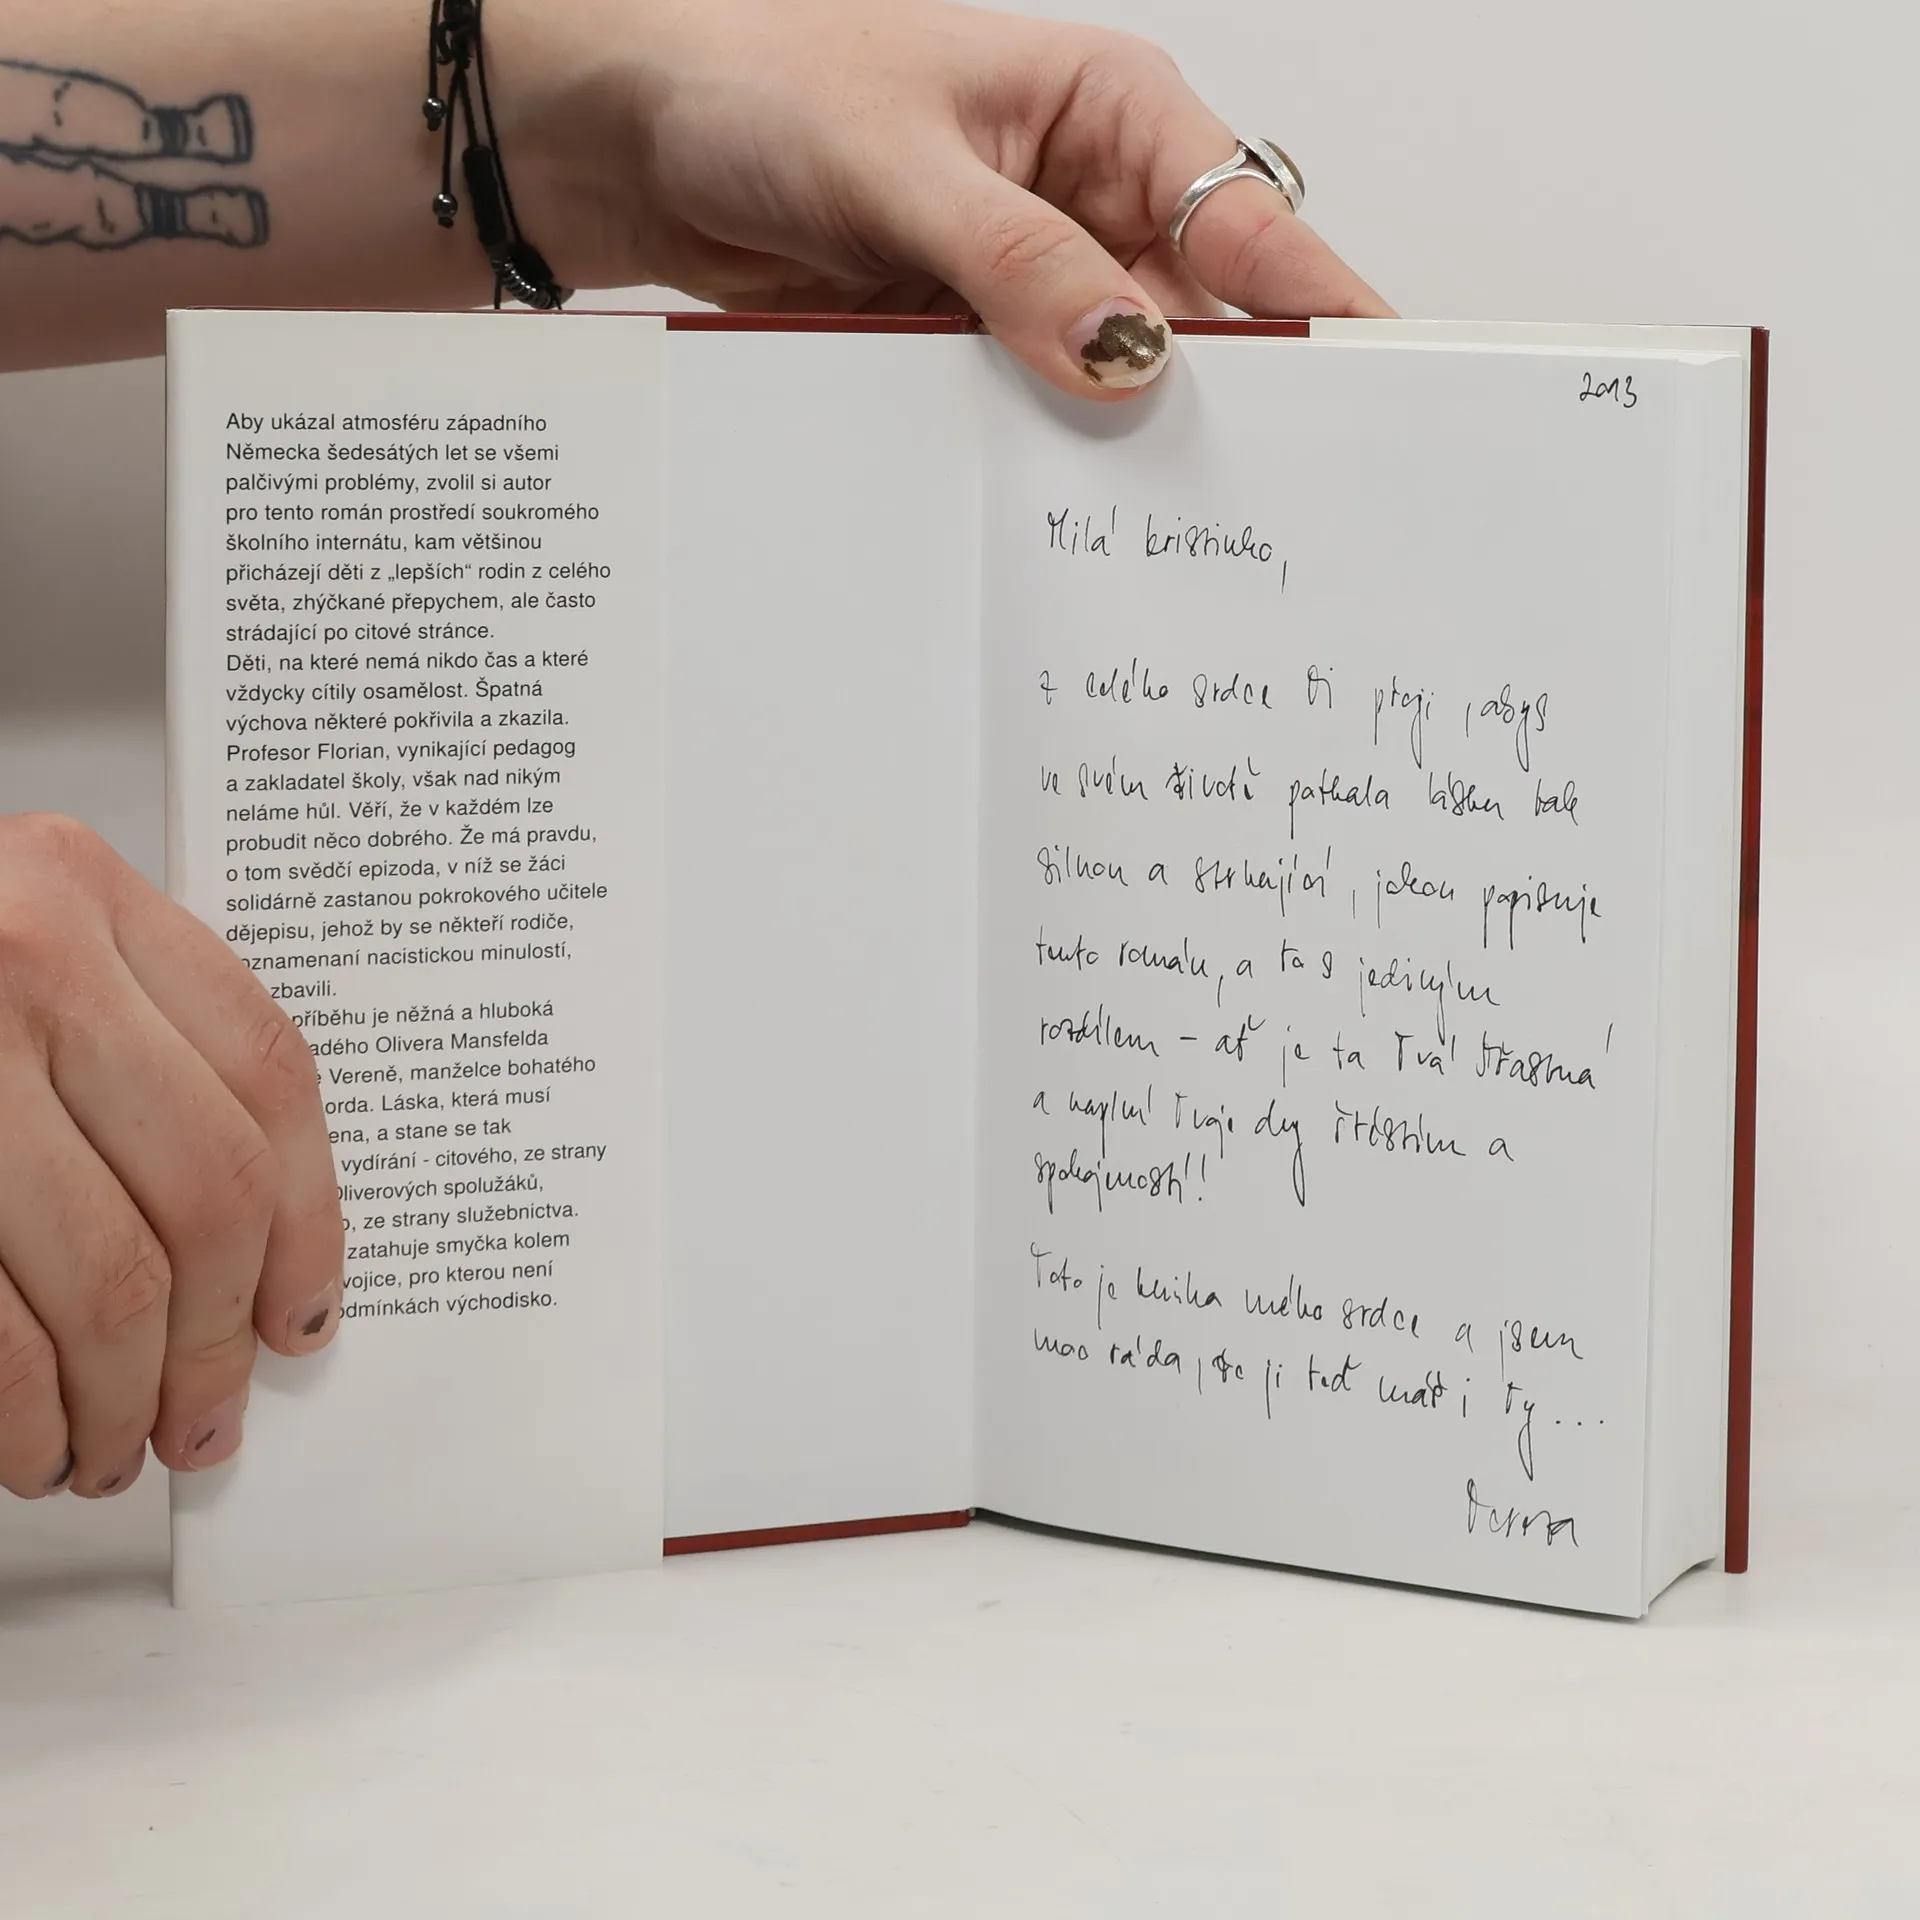 Aby ukázal atmosféru západního
Německa šedesátých let se všemi
palčivými problémy, zvolil si autor
pro tento román prostředí soukromého
školního internátu, kam většinou
přicházejí děti z „lepších“ rodin z celého
světa, zhýčkané přepychem, ale často
strádající po citové stránce.
Děti, na které nemá nikdo čas a které
vždycky cítily osamělost. Špatná
výchova některé pokřivila a zkazila.
Profesor Florian, vynikající pedagog
a zakladatel školy, však nad nikým
neláme hůl. Věří, že v každém lze
probudit něco dobrého. Že má pravdu,
o tom svědčí epizoda, v níž se žáci
solidárně zastanou pokrokového učitele
dějepisu, jehož by se někteří rodiče,
oznamenaní nacistickou minulostí,
zbavili.
příběhu je něžná a hluboká
adého Olivera Mansfelda
Vereně, manželce bohatého
orda. Láska, která musí
ena, a stane se tak
vydírání - citového, ze strany
Oliverových spolužáků,
o, ze strany služebnictva.
zatahuje smyčka kolem
vojice, pro kterou není
odmínkách východisko.
2013
Milá Kristinko,
z celého srdce Ti přeji, abys
ve svém životě potkala lásku tak
silnou a strhující, jakou popisuje
tento román, a to s jediným
rozdílem – ať je ta Tvá šťastná
a naplní Tvoje dny štěstím a
spokojeností!
Toto je knížka mého srdce a jsem
moc ráda, že ji teď máš i Ty...